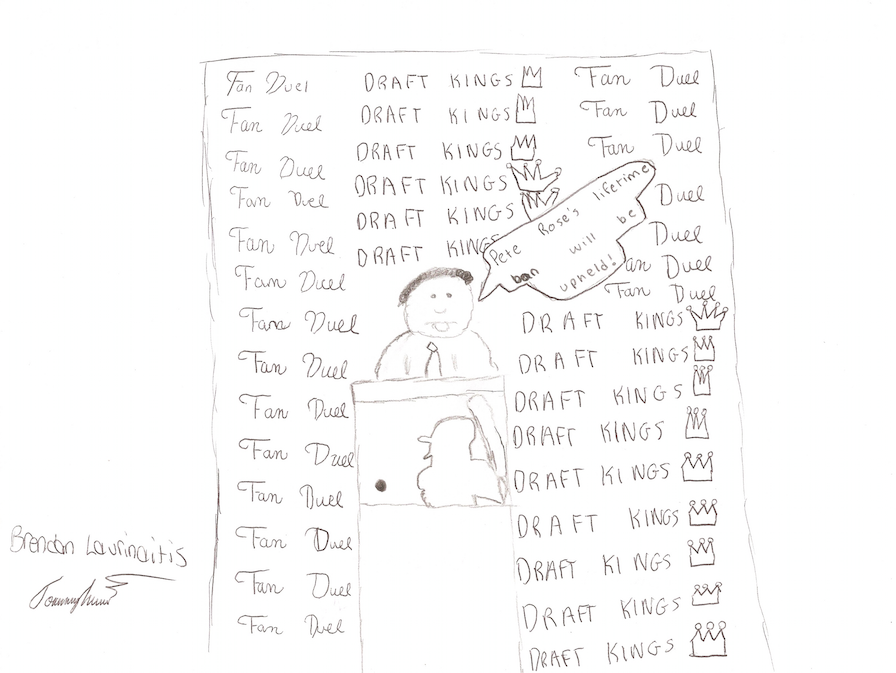 Fan Duel DRAFT KINGS Fan Duel
Fan Duel DRAFT KINGS Fan Duel
Fan Duel DRAFT KINGS Fan Duel
Fan Duel DRAFT KINGS Duel
Fan Duel DRAFT KINGS Duel
Fan Duel DRAFT KINGS an Duel
Fan Duel
Pete Rose's lifetime
ban will be
upheld!
Fan Duel DRAFT KINGS
Fan Duel DRAFT KINGS
Fan Duel DRAFT KINGS
Fan Duel DRAFT KINGS
Fan Duel DRAFT KINGS
Fan Duel DRAFT KINGS
Fan Duel DRAFT KINGS
Fan Duel DRAFT KINGS
DRAFT KINGS
Brendan Laurinaitis